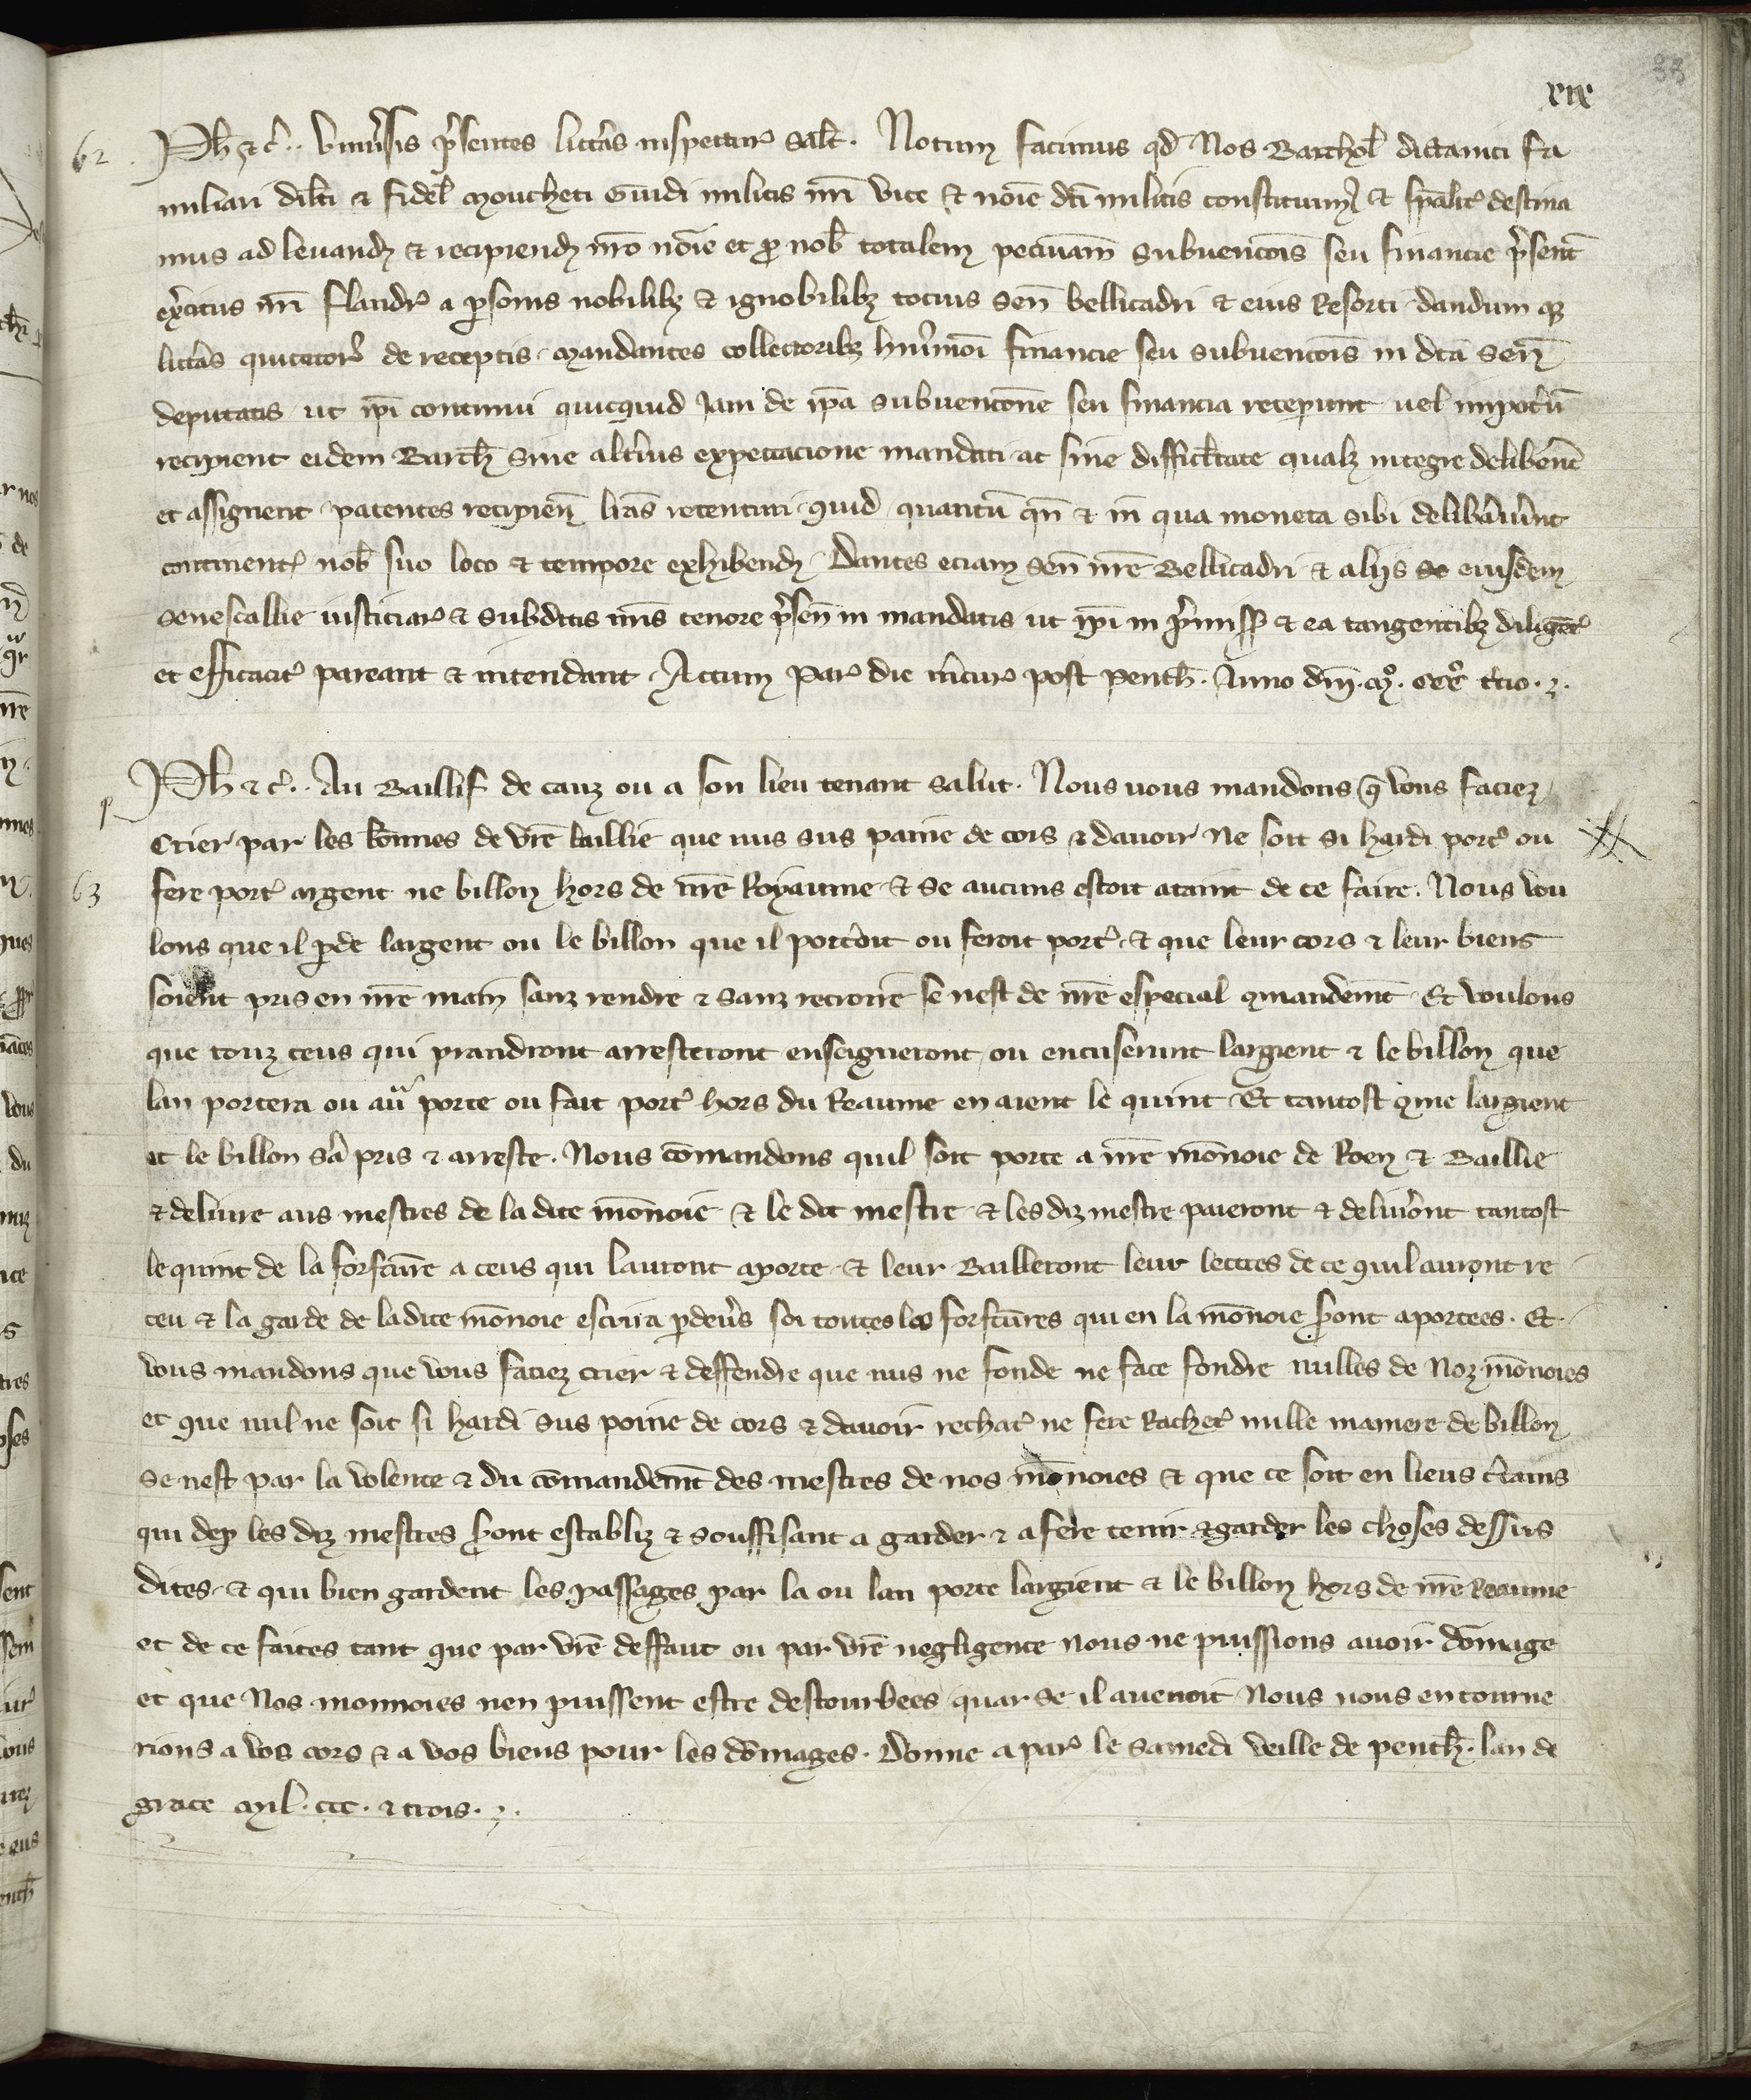 xix
33
62. Ph. etc. Univsis psentes littas inspectur salt. Notum facimus qd Nos Barthol dictamici fa
miliari dilcti et fidel Moucheti Guidi militis nri vice et noie dci militis constituimus et spalit destina
mus ad levand et recipiend nro noie et pro nob totalem pecuniam subvencois seu financie psent
exercitus nri Flandr a psonis nobilibz et ignobilibz tocius sen Bellicadri et eius Resorti dandumqz
littas quitator de receptis. Mandantes collectoribz huiusmoi financie seu subvencois in dca sen
deputatis ut ipi continui quicquid Jam de ipa subvencone seu financia receperunt vel impostum
recipient eidem Barth sine altius expectacione mandati ac sine difficltate qualz integre deliberent
et assignent patentes recipien lras retenturi quid quantu qn et in qua moneta sibi delibaverint
continent nob suo loco et tempore exhibend. Dantes eciam sen nre Bellicadri et aliis se eiusdem
senescallie iusticiar et subditis nris tenore psen in mandatis ut ipi in pmiss et ea tangentibz diligent
et efficacit pareant et intendant. Actum Par die mcur post penth. Anno dni. mo. ccco tcio.
Ph etc. Au Baillif de cauz ou a son lieu tenant salut. Nous vous mandons q vous faciez
Crier par les bonnes de vre baillie que nus sus paine de cors et davoir ne soit si hardi port ou
63 fere port argent ne billon hors de nre Royaume et se aucuns estoit ataint de ce faire. Nous vou
lons que il pde largent ou le billon que il portoit ou feroit port et que leur cors et leur biens
soient pris en nre main sanz rendre et sanz recroire se nest de nre especial mandemt. Et voulons
que touz ceus qui prandront arresteront enseigneront ou encuserunt largient et le billon que
lan portera ou aura porte ou fait port hors du Reaume en aient le quint. Et tantost qme largient
et le billon sa pris et arreste. Nous comandons quil soit porte a nre monoie de Roen et Baillie
et delivre aus mestres de la dite monoie et le dit mestre et les diz mestre paieront et delivront tantost
le quint de la forfcture a ceus qui lauront aporte et leur Bailleront leur lettres de ce quil auront re
ceu et la garde de la dite monoie escrira pdevs soi toutes les forfctures qui en la monoie seront aportees. Et
vous mandons que vous faciez crier et deffendre que nus ne fonde ne face fondre nulles de Noz monoies
et que nul ne soit si hardi sus poine de cors et davoir rechat ne fere Rachet nulle maniere de billon
se nest par la volente et du comandemt des mestres de nos monoies et que ce soit en lieus ctains
qui dep les diz mestres seront establiz et souffisant a garder et a fere tenir et garder les choses dessus
dites et qui bien gardent les passages par la ou lan porte largient et le billon hors de nre Reaume
et de ce faites tant que par vre deffaut ou par vre negligence nous ne puissions avoir domage
et que Nos monnoies nen puissent estre destourbees quar se il avenoit Nous nous en tourne
rions a vos cors et a vos biens pour les domages. Donne a par le samedi veille de penth. lan de
grace mil. ccc. et trois.